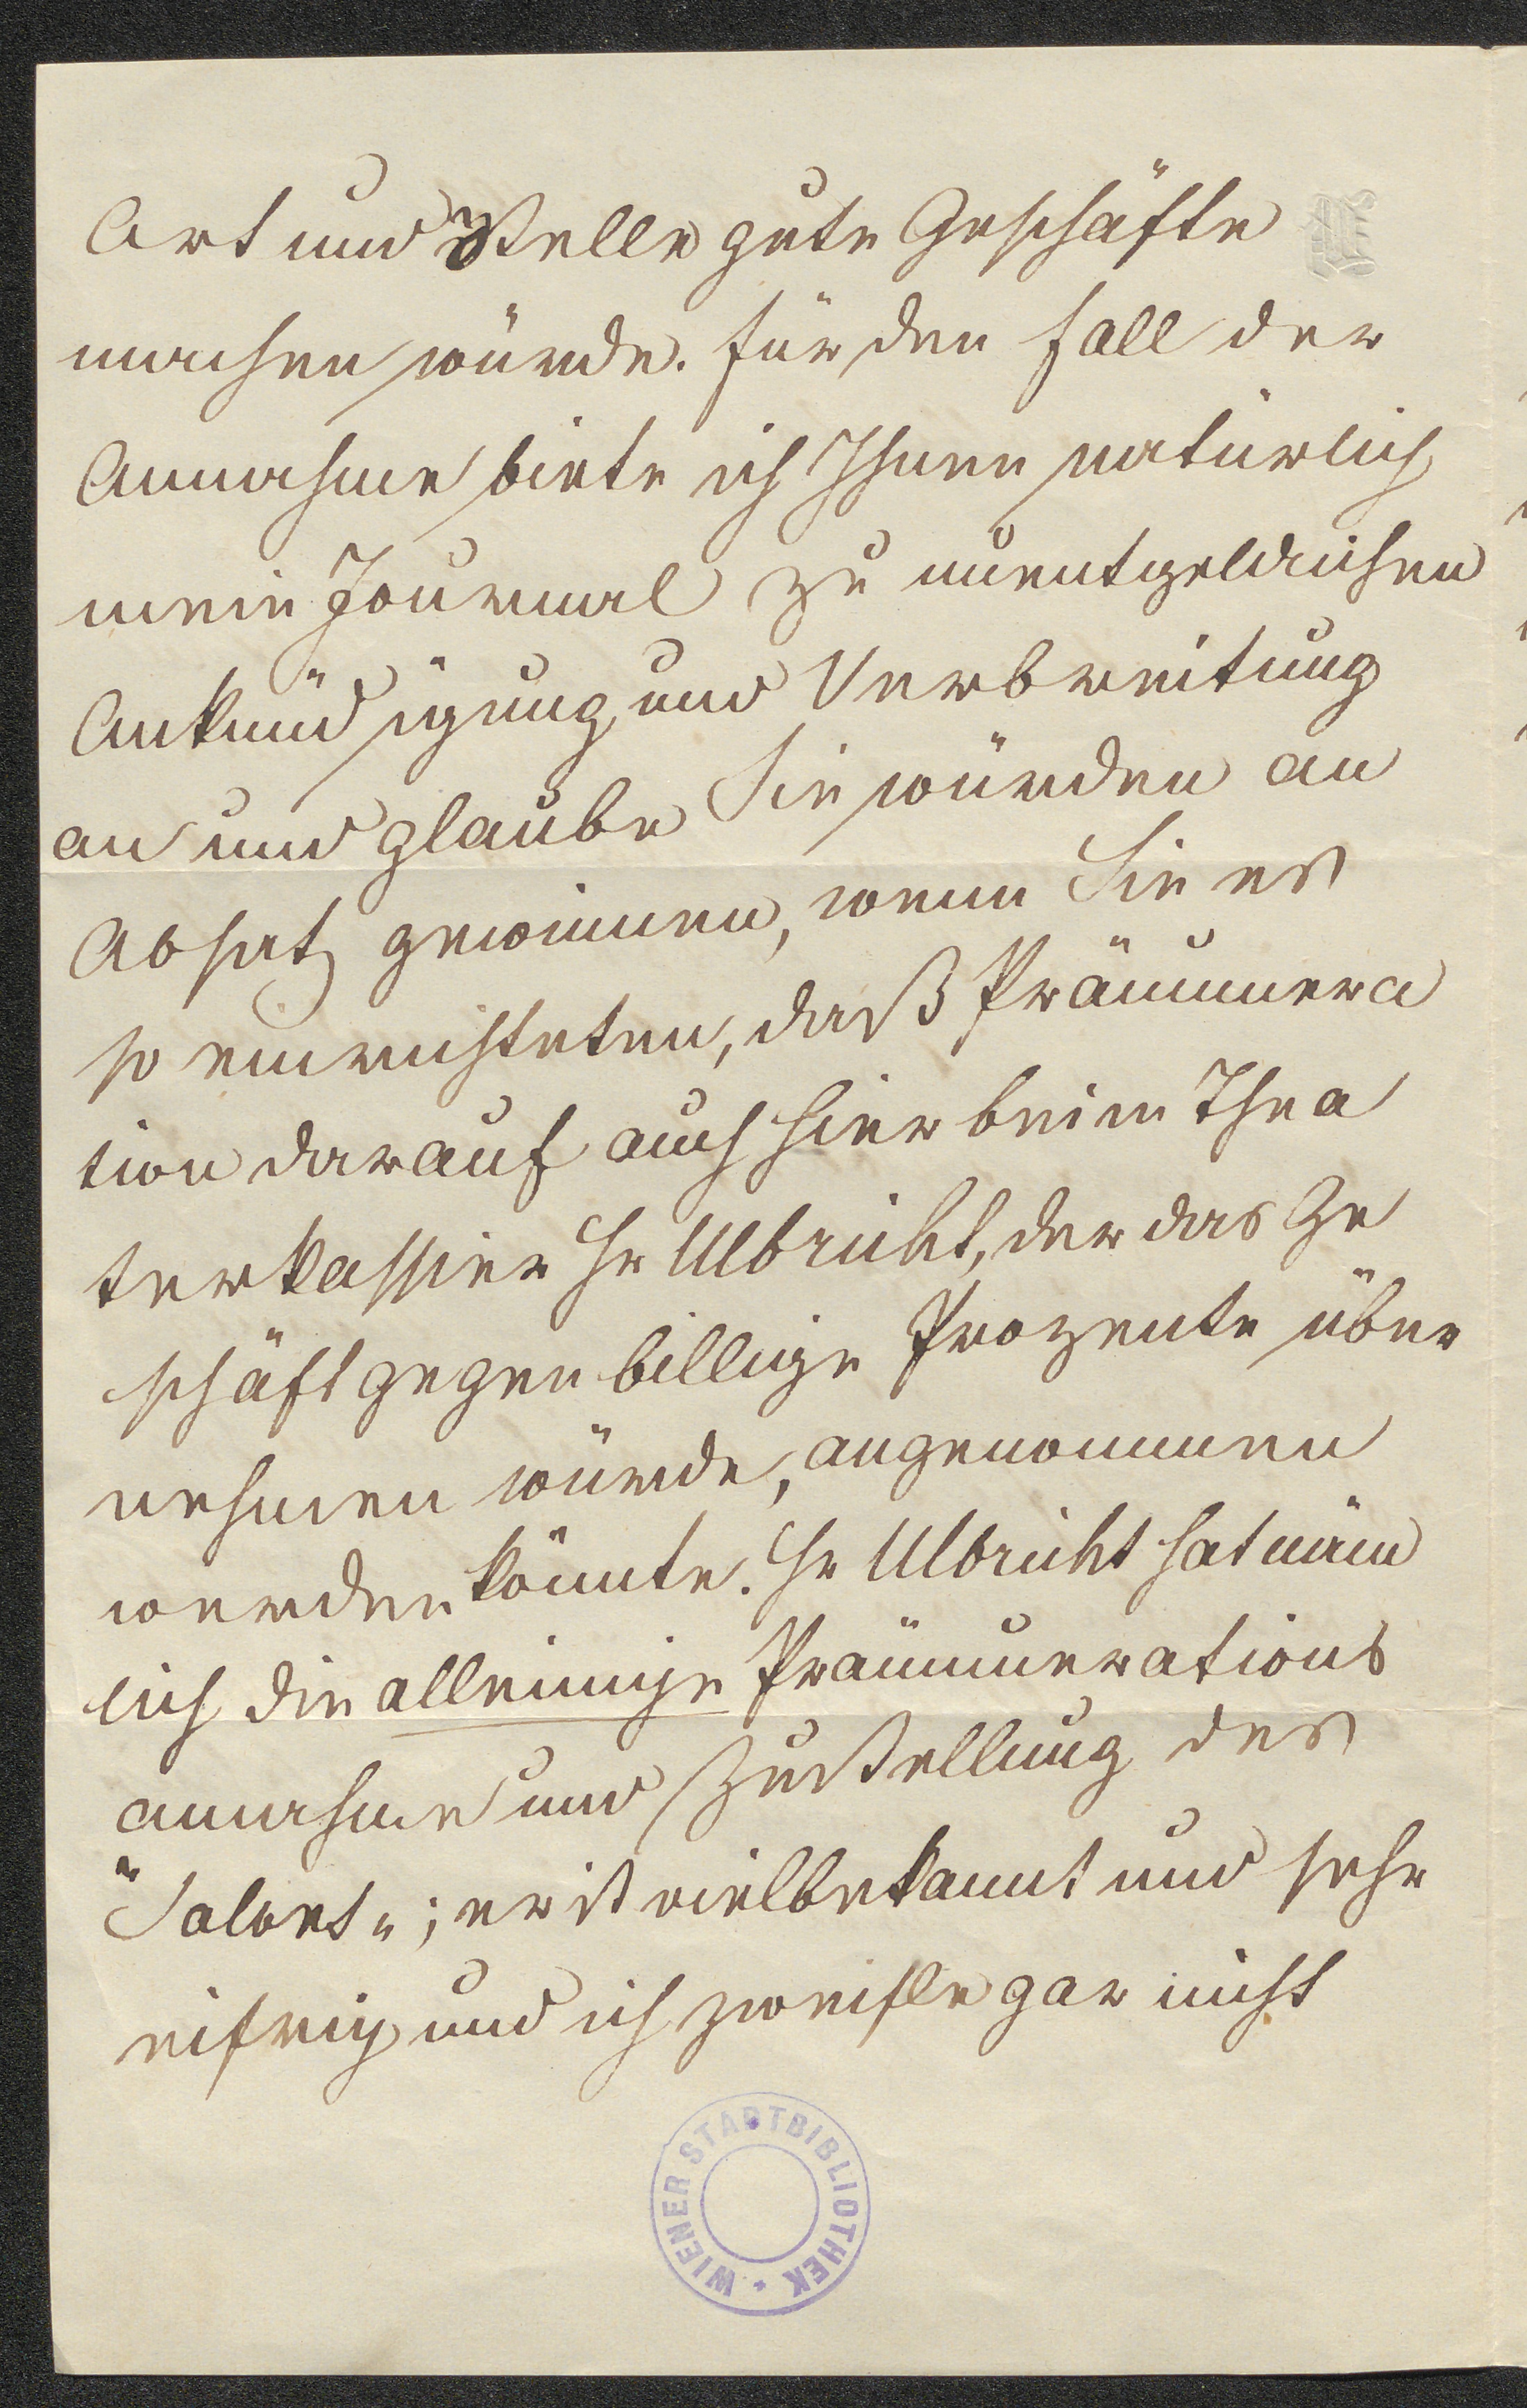 Ort und Stelle gute Geschäfte
machen würde. Für den Fall der
Annahme biete ich Ihnen natürlich
mein Journal zu unentgeldlichen
Ankündigung und Verbreitung
an und glaube Sie würden an
Absatz gewinnen, wenn Sie es
so einrichteten, daß Pränumera
tion darauf auch hier beim Thea
terkassier Hr Ulbricht, der das Ge
schäft gegen billige Prozente über
nehmen würde, angenommen
werden könnte. Hr Ulbricht hat näm
lich die alleinige Pränumerations
annahme und Zustellung des
"Salons"; er ist vielbekannt und sehr
eifrig und ich zweifle gar nicht
WIENER STADTBIBLIOTHEK